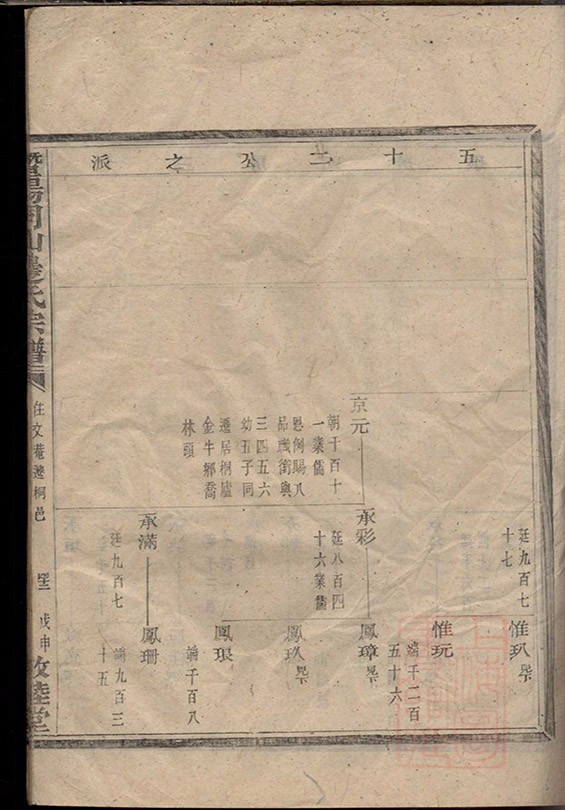 五十二公之派
廷九百七
十七
惟玐
惟玩
論千二百
五十六
京元
朝千百十
一業儒
恩例賜八
品職銜與
三四五六
幼五子同
遷居桐廬
金牛鄉喬
林頭
承彩
廷八百四
十六業儒
鳳璋
鳳玖
鳳琅
論千百八
承滿
廷九百七
鳳珊
論九百三
十五
暨陽同山邊氏宗譜
在文菴遷桐邑
戊申
敦睦堂